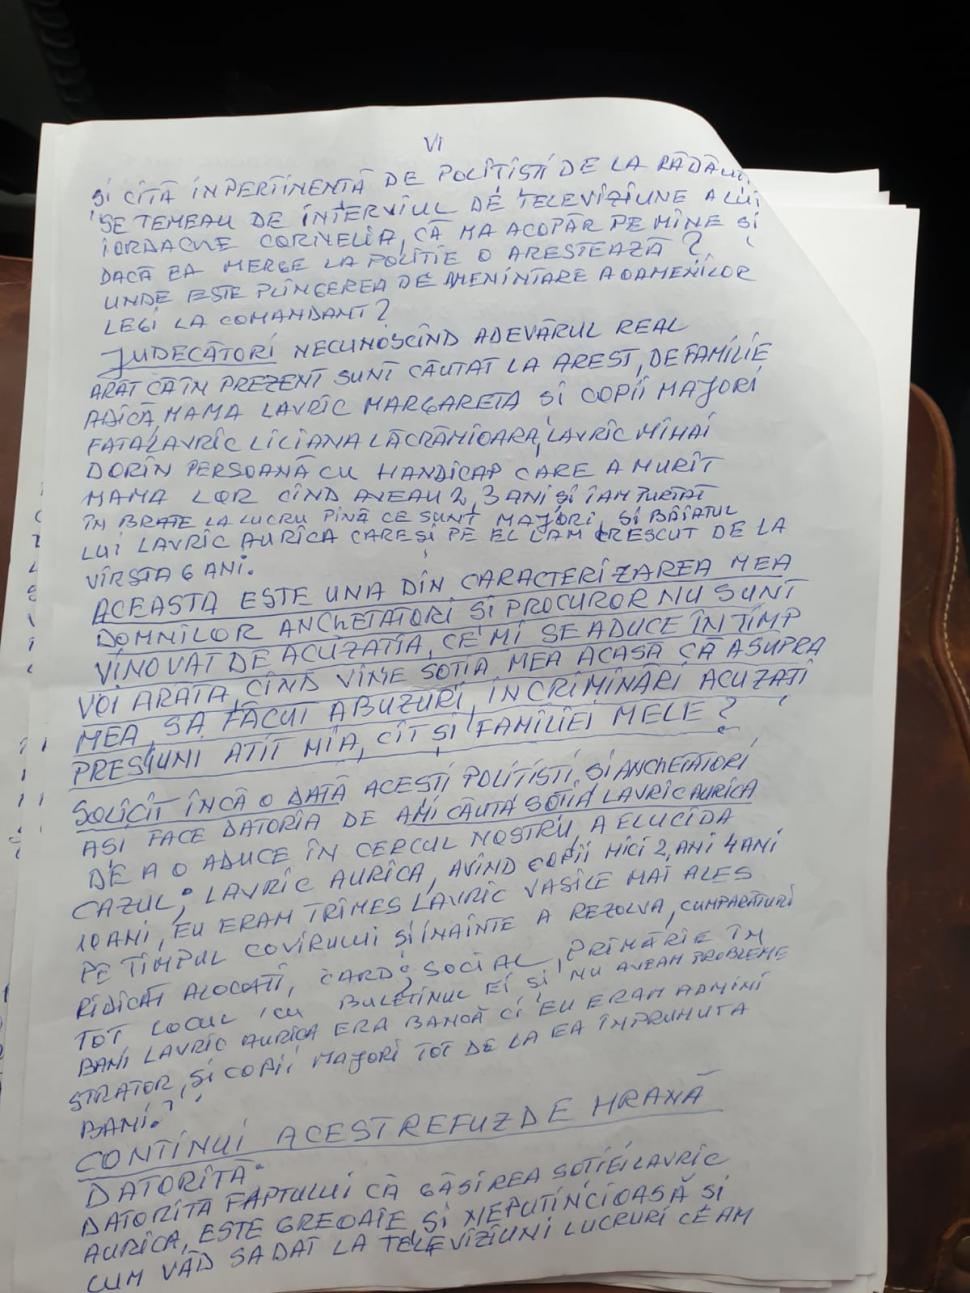 VI
ȘI CÎTĂ INPERTINENȚĂ DE POLIȚIȘTI DE LA RĂDĂUȚI
SE TEMEAU DE INTERVIUL DE TELEVIZIUNE A LUI
IORDACHE CORNELIA, CĂ MA ACOPĂR PE MINE SI
DACĂ EA MERGE LA POLITIE O ARESTEAZĂ?
UNDE ESTE PLÎNGEREA DE AMENINTARE A OAMENILOR
LEGI LA COMANDANT?
JUDECĂTORI NECUNOSCÎND ADEVĂRUL REAL
ARĂT CĂ ÎN PREZENT SUNT CĂUTAT LA AREST, DE FAMILIE
ADICĂ, MAMA LAVRIC MARGARETA SI COPII MAJORI
FATA LAVRIC LILIANA LĂCRĂMIOARA, LAVRIC MIHAI
DORIN PERSOANĂ CU HANDICAP CARE A MURIT
MAMA LOR CÎND AVEAU 2, 3 ANI ȘI I AM PURTAT
ÎN BRATE LA LUCRU PÎNĂ CE SUNT MAJORI, SI BĂIATUL
LUI LAVRIC AURICA CARE SI PE EL L'AM CRESCUT DE LA
VÎRSTA 6 ANI.
ACEASTA ESTE UNA DIN CARACTERIZAREA MEA
DOMNILOR ANCHETATORI SI PROCUROR NU SUNT
VINOVAT DE ACUZAȚIA, CE'MI SE ADUCE ÎN TIMP
VOI ARATA, CÎND VINE SOȚIA MEA ACASĂ CĂ ASUPRA
MEA, SA FĂCUT ABUZURI, ÎNCRIMINĂRI ACUZAȚI
PRESIUNI ATIT MIA, CÎT ȘI FAMILIEI MELE?
SOLICIT ÎNCĂ O DATĂ ACESTI POLITISTI, SI ANCHETATORI
ASI FACE DATORIA DE AMI CĂUTA SOȚIA LAVRIC AURICA
DE A O ADUCE ÎN CERCUL NOSTRU, A ELUCIDA
CAZUL; LAVRIC AURICA, AVIND COPII MICI 2, ANI 4 ANI
10 ANI, EU ERAM TRIMES LAVRIC VASILE MAI ALES
PE TIMPUL COVIRULUI ȘI ÎNAINTE A REZOLVA, CUMPARĂTURI
RIDICAT ALOCAȚII, CARD, SOCIAL, PRIMĂRIE ÎN
TOT LOCUL, CU BULETINUL EI ȘI NU AVEAM PROBLEME
BANI LAVRIC AURICA ERA BANCĂ CI EU ERAM ADMINI
STRATOR, SI COPII MAJORI TOT DE LA EA ÎMPRUMUTA
BANI.
CONTINUI ACEST REFUZ DE HRANĂ
DATORITĂ
DATORITĂ FAPTULUI CĂ GĂSIREA SOTIEI LAVRIC
AURICA, ESTE GREOAIE, SI NEPUTINCIOASĂ SI
CUM VĂD SA DAT LA TELEVIZIUNI LUCRURI CE AM